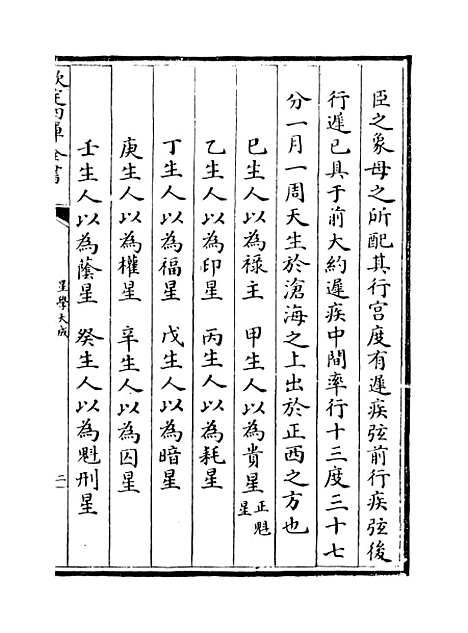 臣之象母之所配其行宫度有遲疾弦前行疾弦後
行遲已具于前大約遲疾中間率行十三度三十七
分一月一周天生於滄海之上出於正西之方也
巳生人以為祿主　甲生人以為貴星正魁星
乙生人以為印星　丙生人以為耗星
丁生人以為福星　戊生人以為暗星
庚生人以為權星　辛生人以為囚星
壬生人以為蔭星　癸生人以為魁刑星
欽定四庫全書
星學大成
二